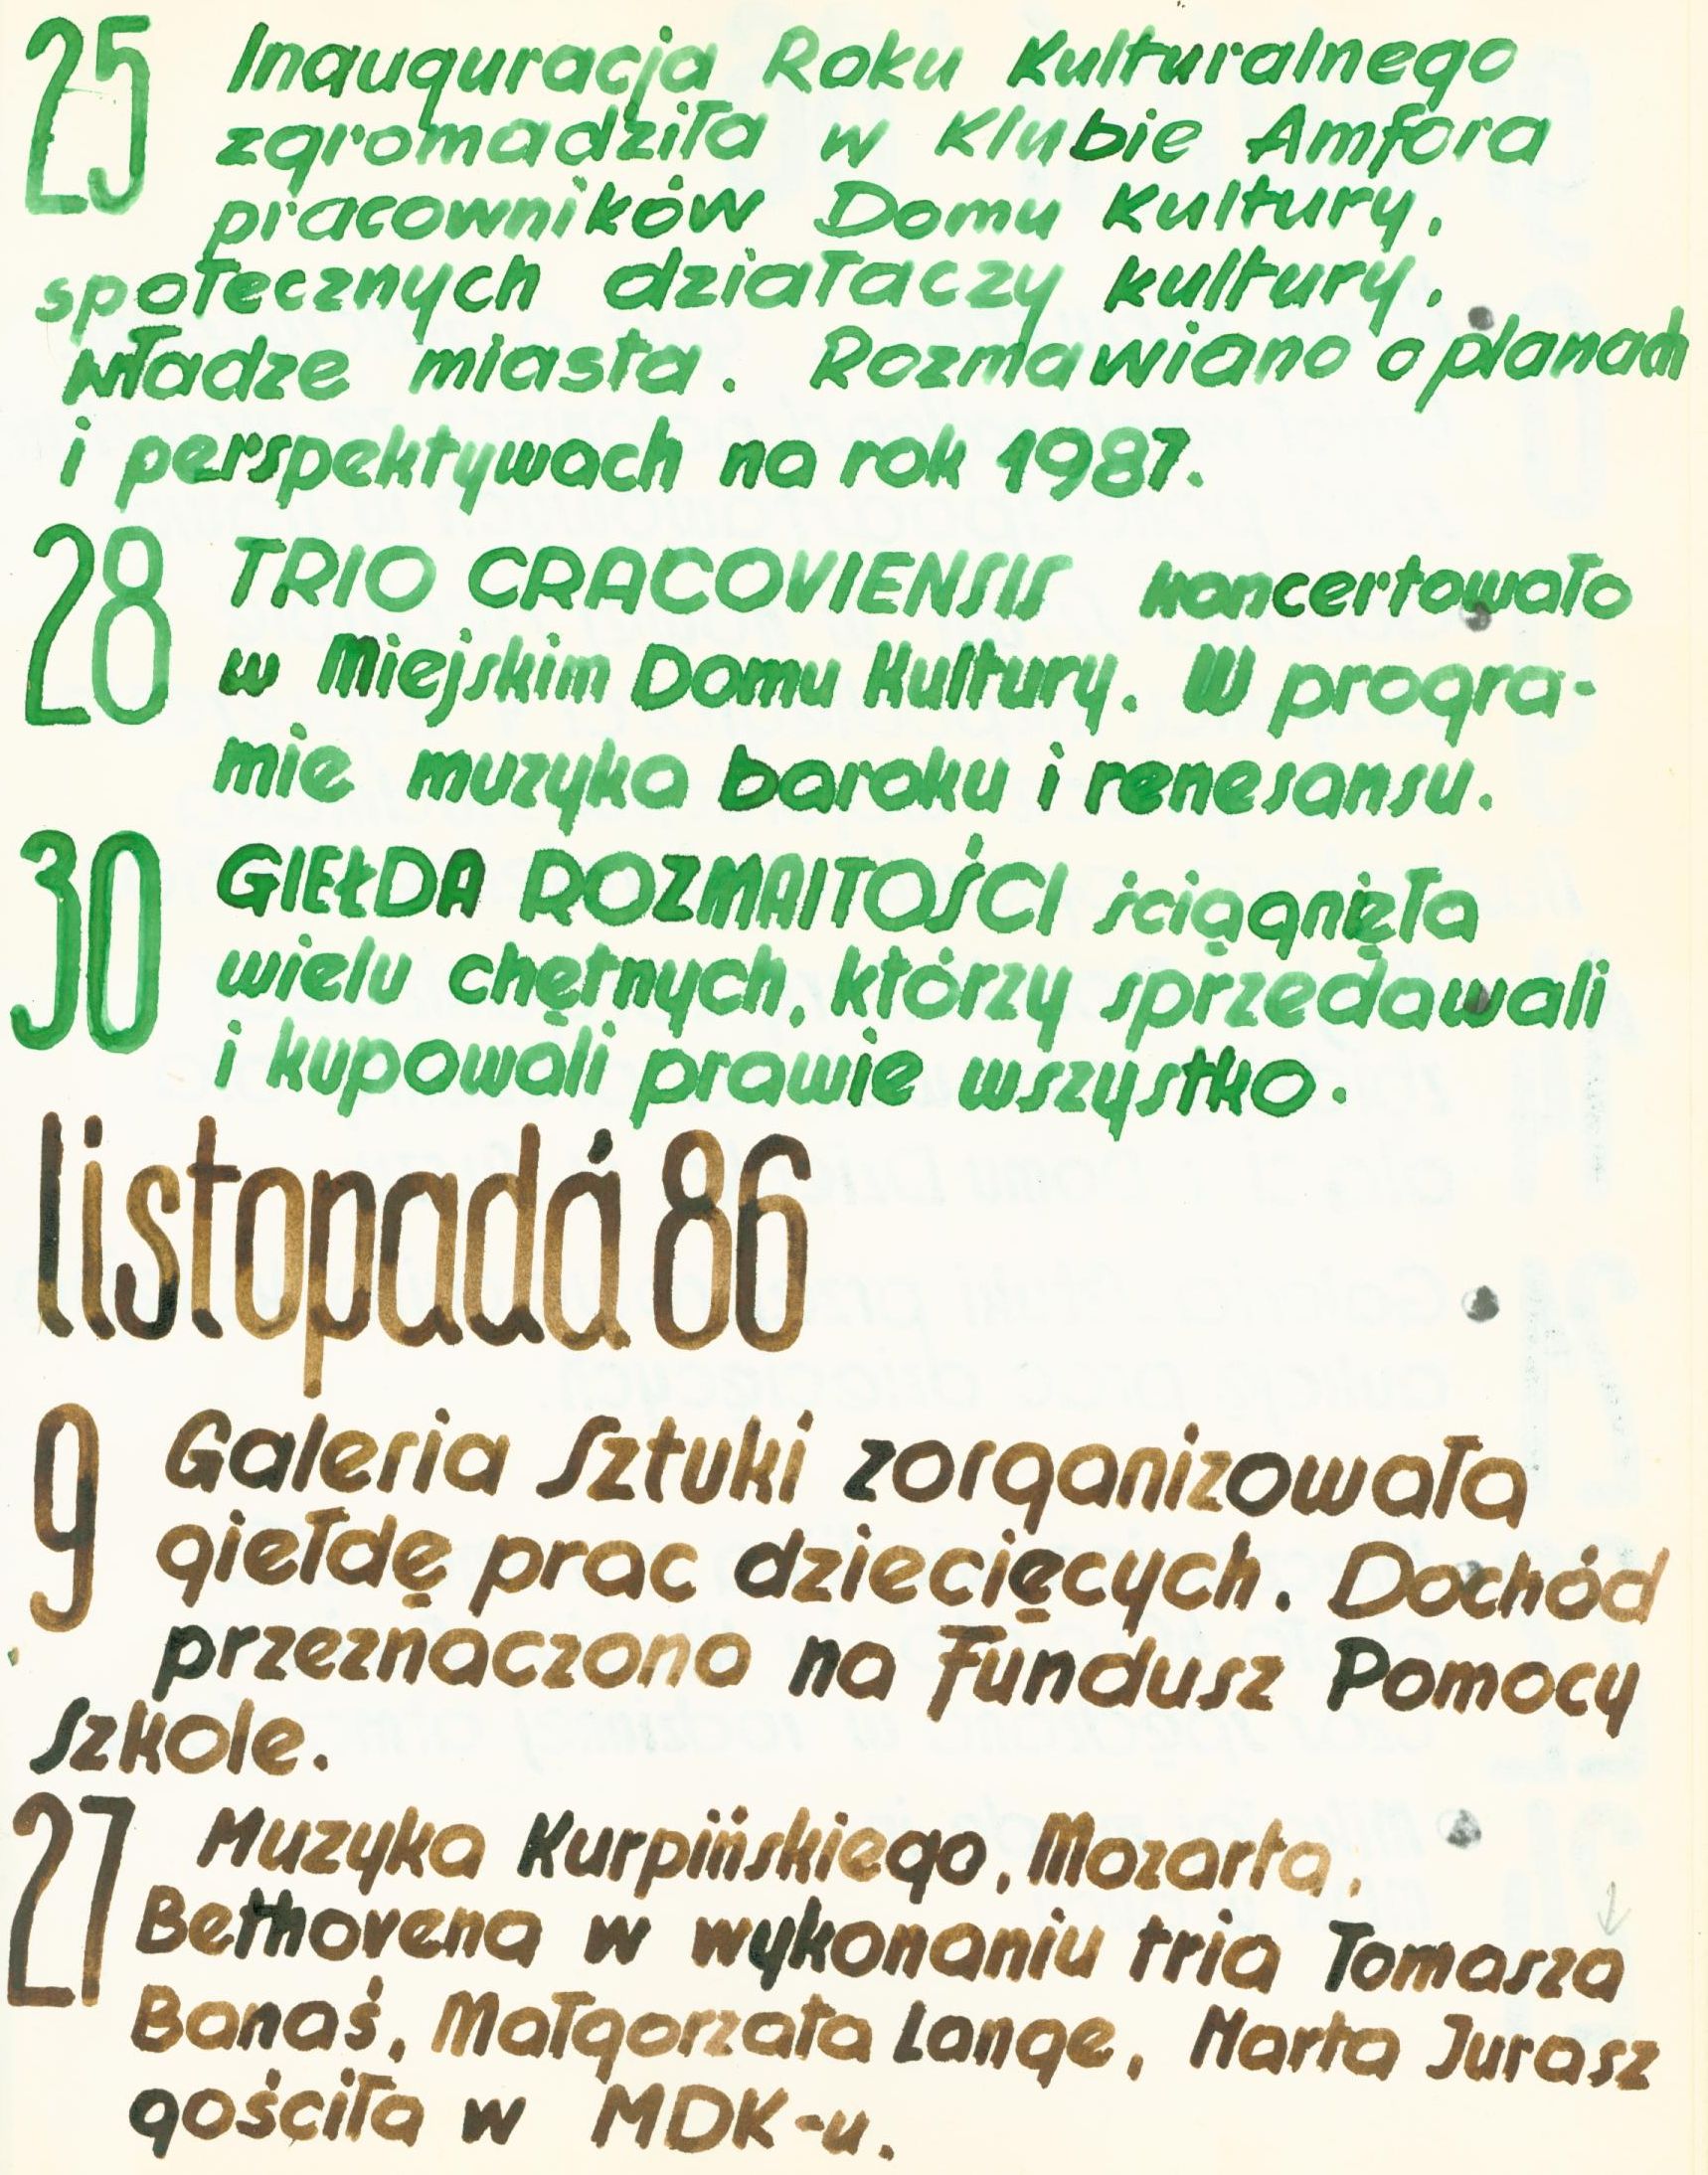 25 Inauguracja Roku Kulturalnego
zgromadziła w Klubie Amfora
pracowników Domu Kultury,
społecznych działaczy kultury,
władze miasta. Rozmawiano o planach
i perspektywach na rok 1987.
28 TRIO CRACOVIENSIS koncertowało
w Miejskim Domu Kultury. W progra-
mie muzyka baroku i renesansu.
30 GIEŁDA ROZMAITOŚCI ściągnęła
wielu chętnych, którzy sprzedawali
i kupowali prawie wszystko.
listopad 86
9 Galeria Sztuki zorganizowała
giełdę prac dziecięcych. Dochód
przeznaczono na Fundusz Pomocy
Szkole.
27 Muzyka Kurpińskiego, Mozarta,
Bethovena w wykonaniu tria Tomasza
Banaś, Małgorzata Lange, Marta Jurasz
gościła w MDK-u.